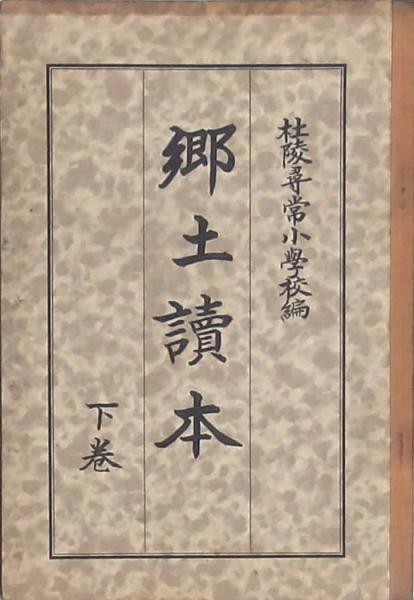 杜陵尋常小學校編
鄉土讀本
下卷